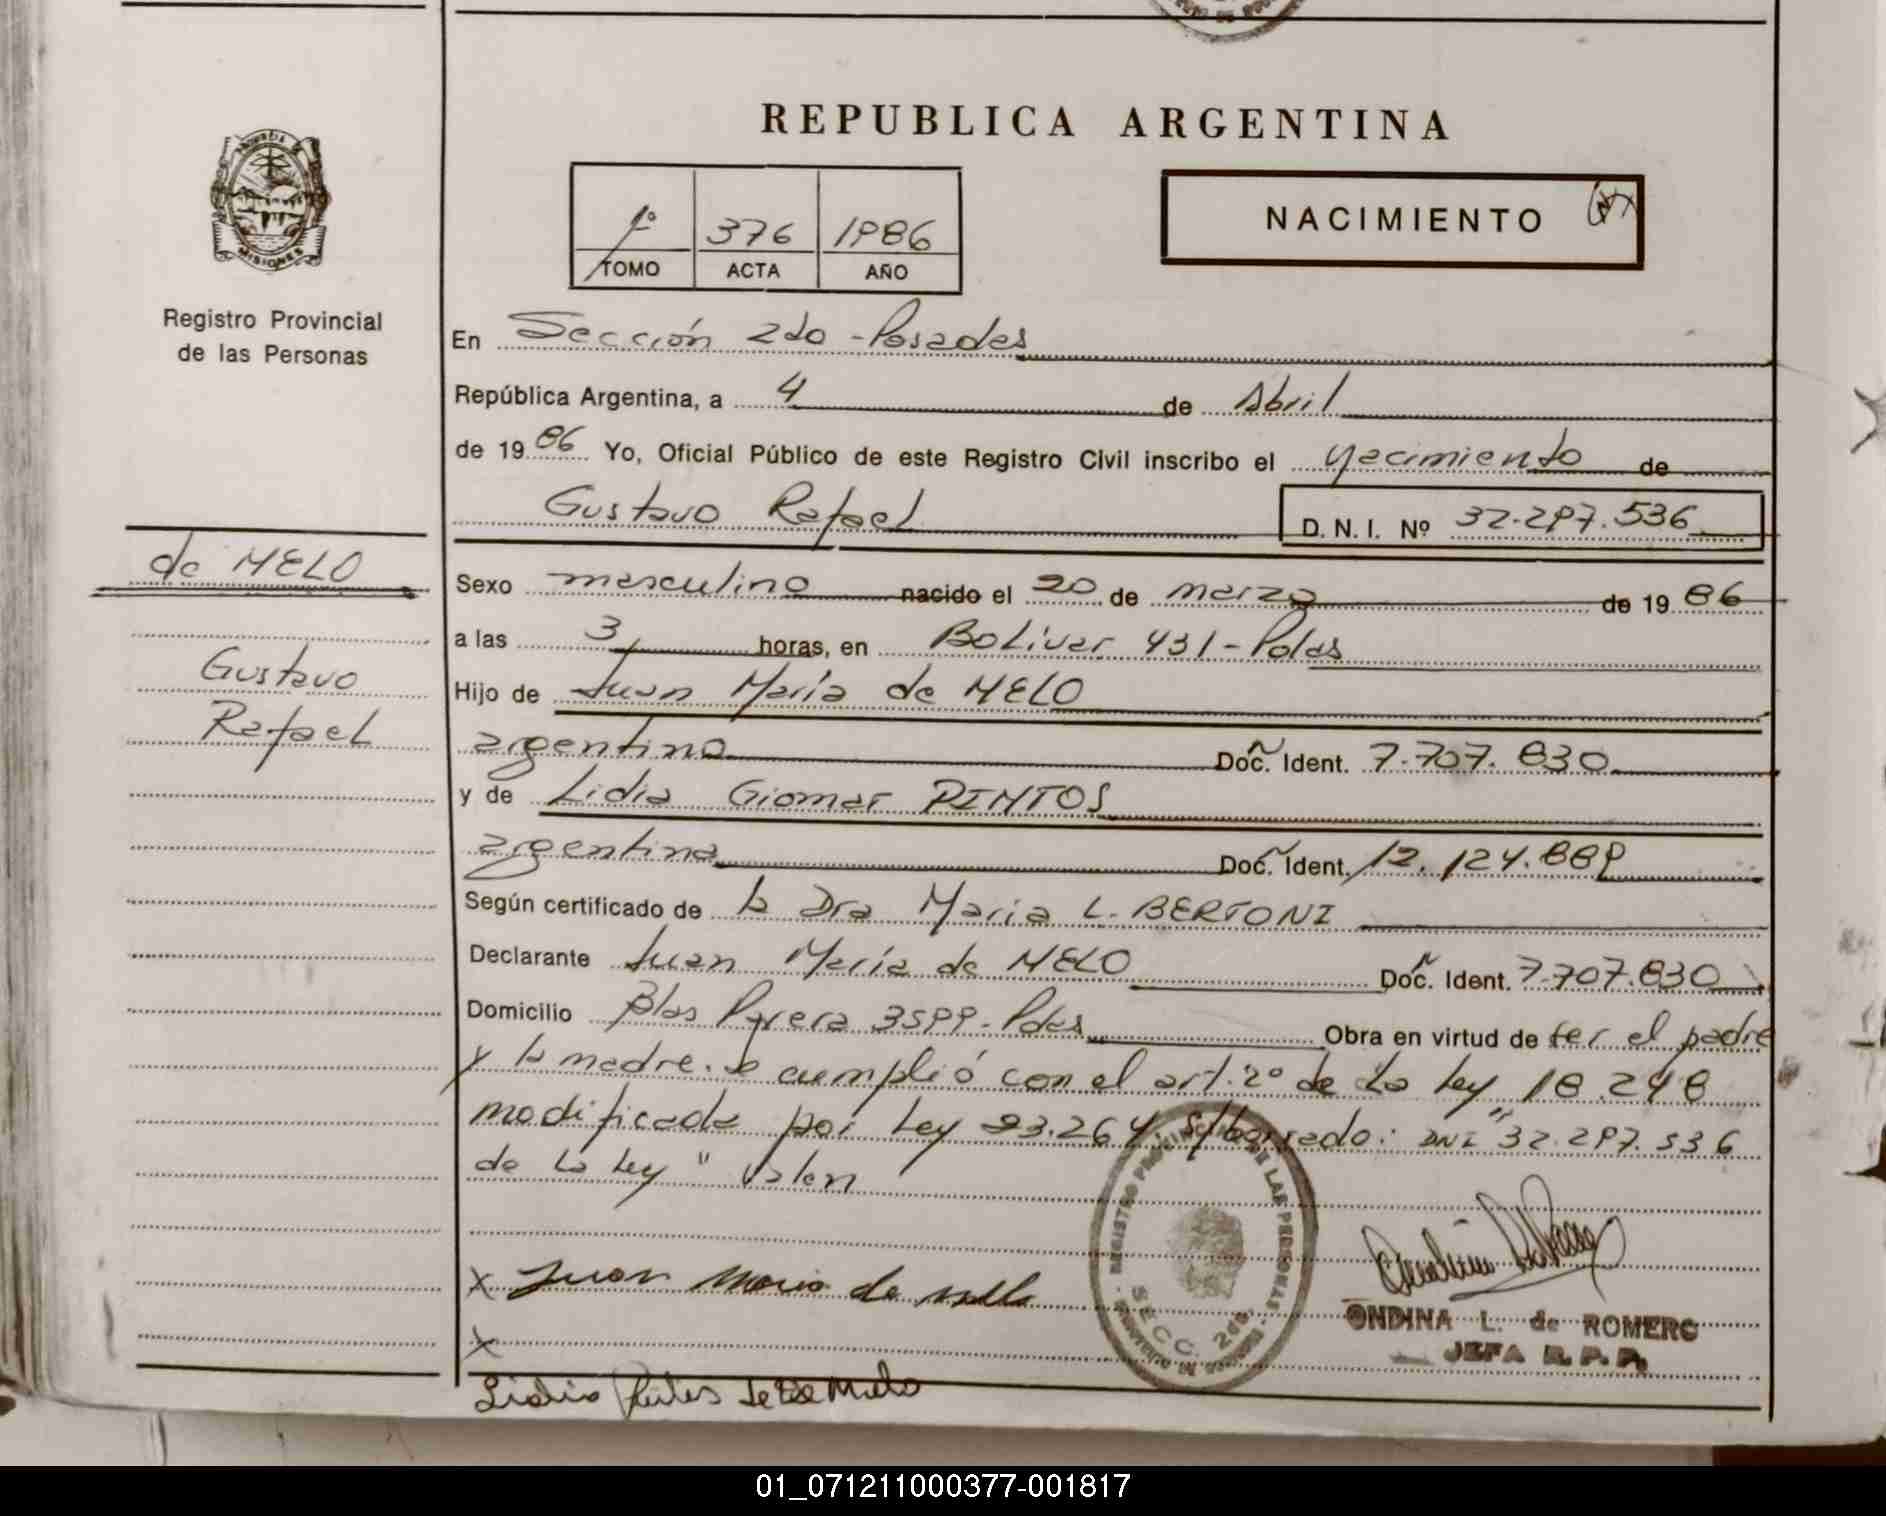 REPUBLICA ARGENTINA
PROVINCIA DE
MISIONES
Registro Provincial
de las Personas
1º 376 1986
TOMO ACTA AÑO
NACIMIENTO
En Sección 2do - Posadas
República Argentina, a 4 de Abril
de 1986 Yo, Oficial Público de este Registro Civil inscribo el nacimiento de
Gustavo Rafael D. N. I. Nº 32.297.536
de MELO
Gustavo
Rafael
Sexo masculino nacido el 20 de marzo de 1986
a las 3 horas, en Bolivar 431 - Pdas
Hijo de Juan María de MELO
argentino Doc. Ident. 7.707.830
y de Lidia Giomar PINTOS
argentina Doc. Ident. 12.124.889
Según certificado de la Dra Maria L. BERTONI
Declarante Juan María de MELO Doc. Ident. 7.707.830
Domicilio Blas Parera 3599 - Pdas Obra en virtud de ser el padre
y la madre. Se cumplió con el art. 2º de La Ley 18.248
modificada por Ley 23.264 s/borrado: DNI "32.297.536
de La Ley" Valen
REGISTRO PROVINCIAL DE LAS PERSONAS
SECC. 2da
X Juan Maria de mello
X
Lidia Pintos de De Melo
ONDINA L. de ROMERO
JEFA R. P. P.
01_071211000377-001817